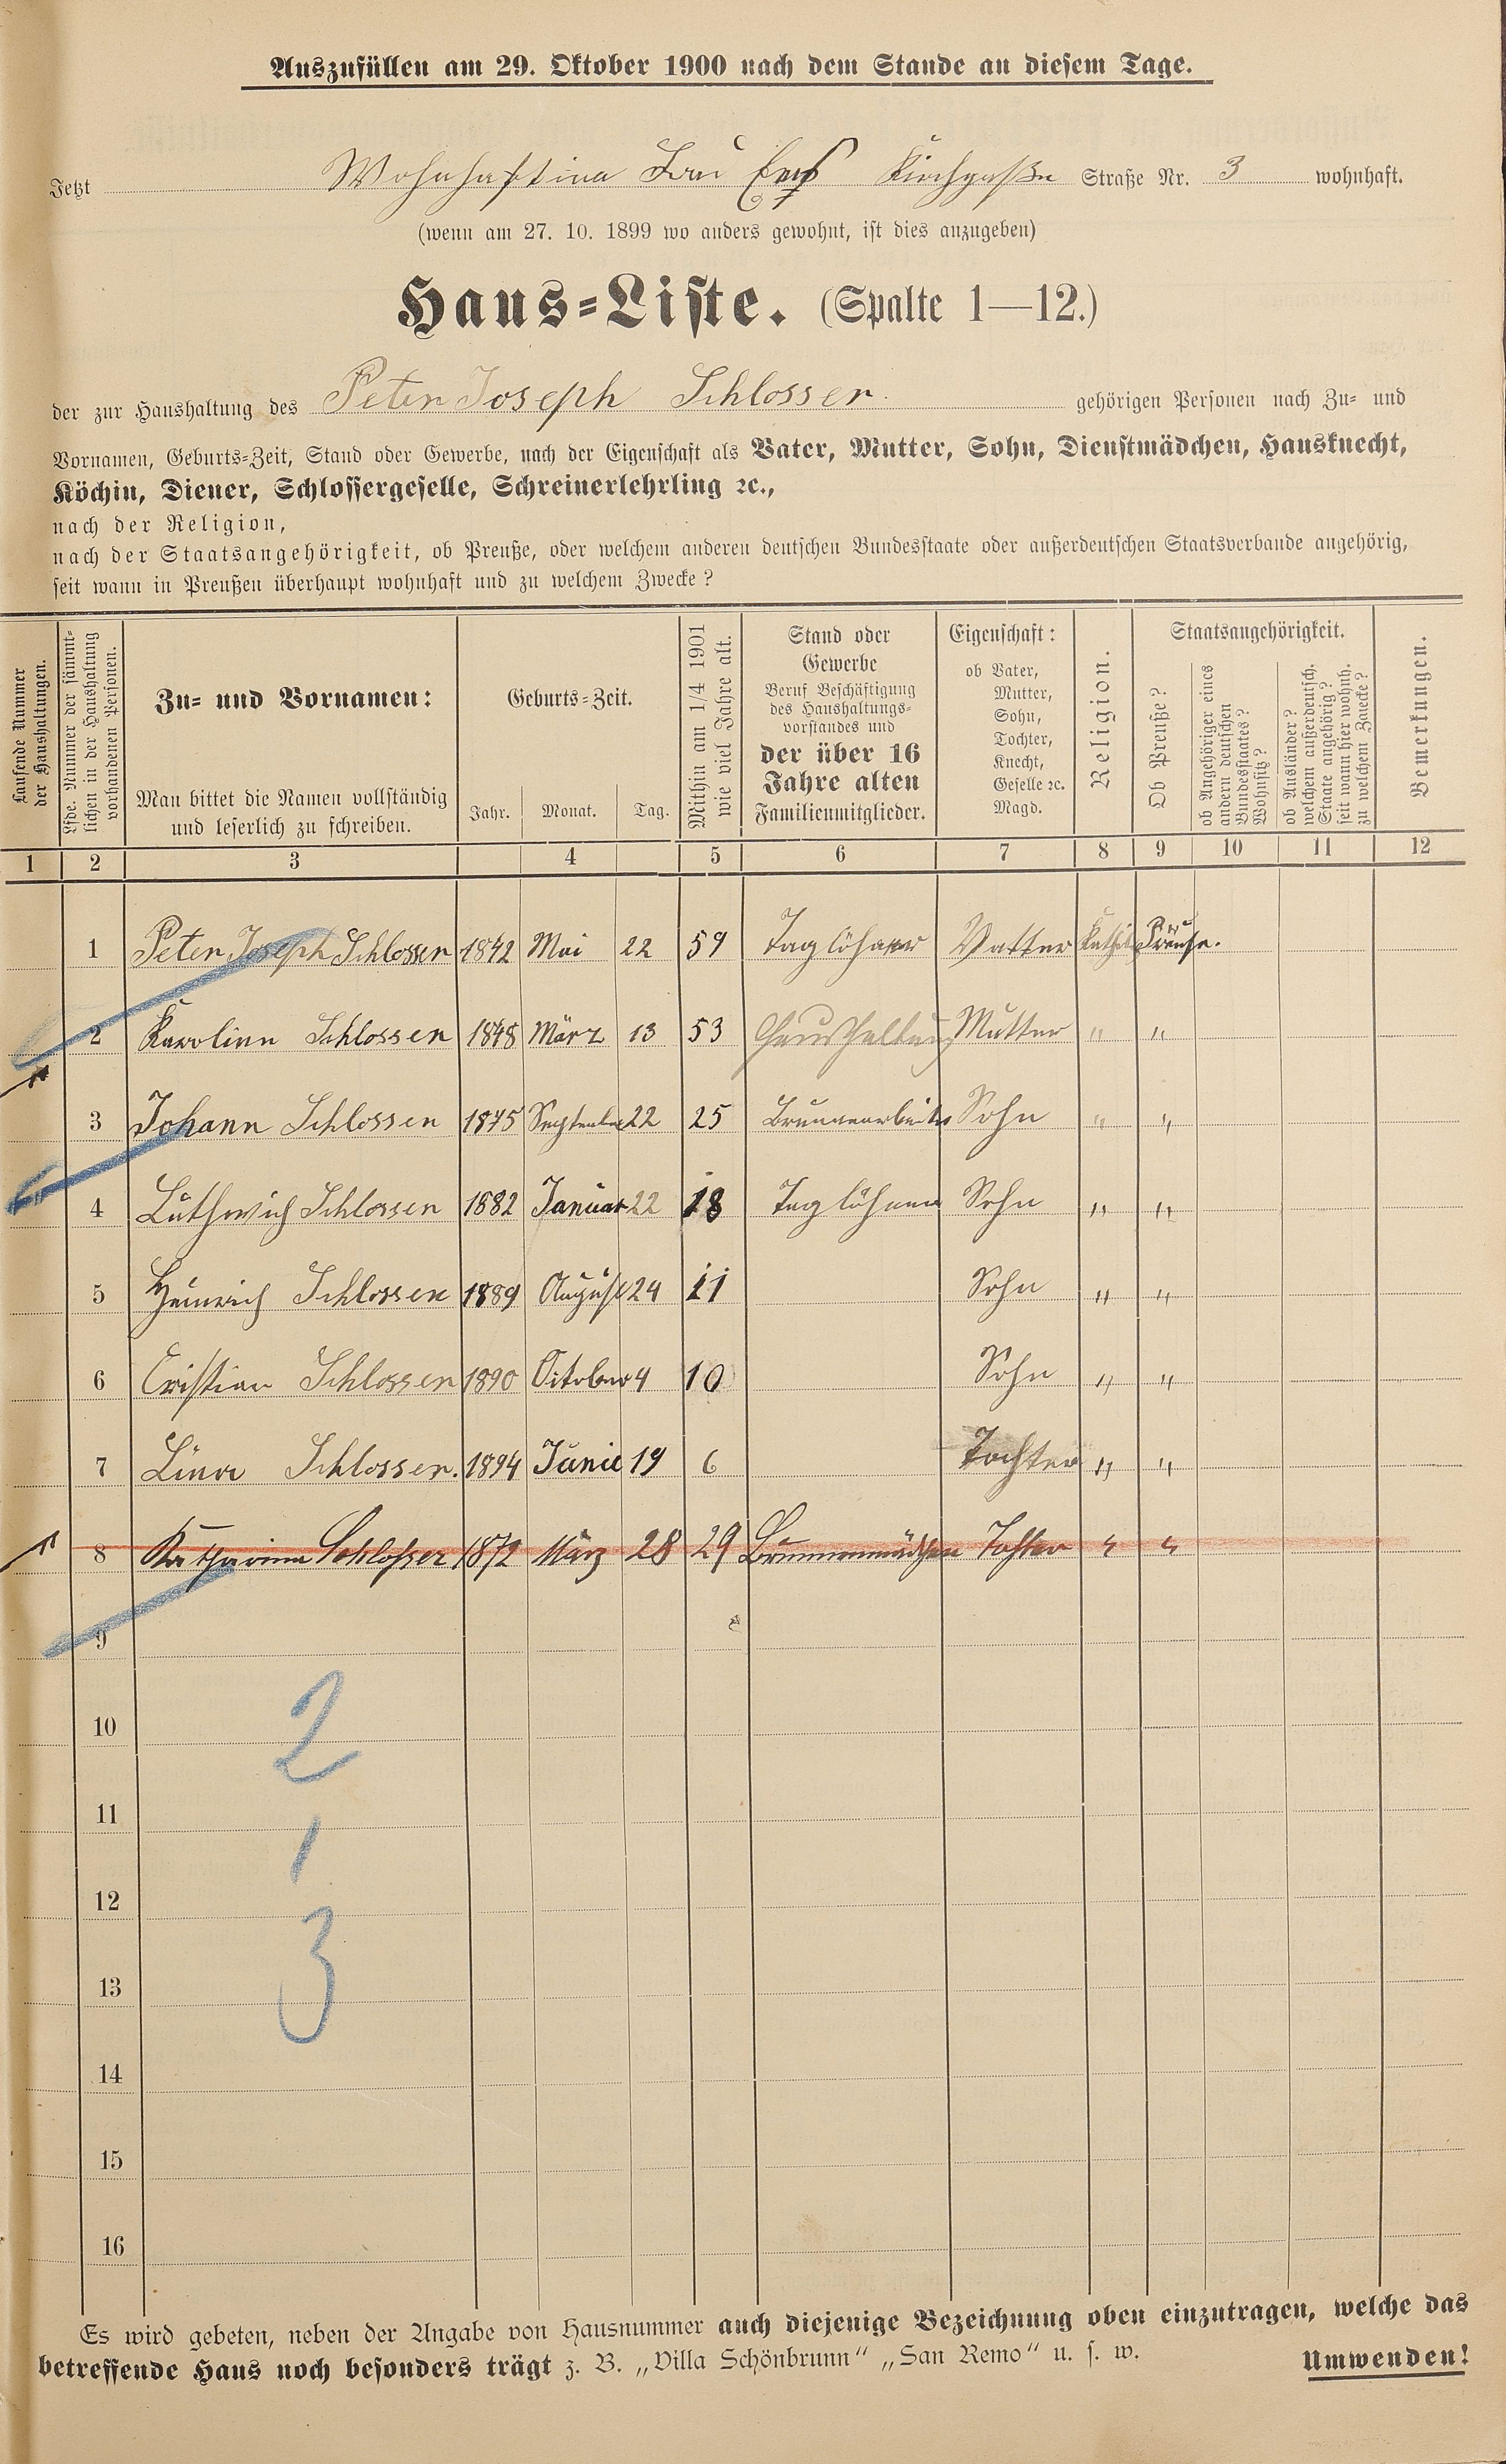 Auszufüllen am 29. Oktober 1900 nach dem Stande an diesem Tage.
Jetzt Kirchgaße Straße Nr. 3 wohnhaft.
(wenn am 27. 10. 1899 wo anders gewohnt, ist dies anzugeben)
Haus-Liste. (Spalte 1—12.)
der zur Haushaltung des Peter Joseph Schlosser. gehörigen Personen nach Zu- und
Vornamen, Geburts-Zeit, Stand oder Gewerbe, nach der Eigenschaft als Vater, Mutter, Sohn, Dienstmädchen, Hausknecht,
Köchin, Diener, Schlossergeselle, Schreinerlehrling ꝛc.,
nach der Religion,
nach der Staatsangehörigkeit, ob Preuße, oder welchem anderen deutschen Bundesstaate oder außerdeutschen Staatsverbande angehörig,
seit wann in Preußen überhaupt wohnhaft und zu welchem Zwecke?
Laufende Nummer
der Haushaltungen.
Lfde. Nummer der sämmt-
lichen in der Haushaltung
vorhandenen Personen.
Zu- und Vornamen:
Man bittet die Namen vollständig
und leserlich zu schreiben.
Geburts-Zeit.
Jahr. Monat. Tag.
Mithin am 1/4 1901
wie viel Jahre alt.
Stand oder
Gewerbe
Beruf Beschäftigung
des Haushaltungs-
vorstandes und
der über 16
Jahre alten
Familienmitglieder.
Eigenschaft:
ob Vater,
Mutter,
Sohn,
Tochter,
Knecht,
Geselle ꝛc.
Magd.
Religion.
Staatsangehörigkeit.
Ob Preuße?
ob Angehöriger eines
andern deutschen
Bundesstaates?
Wohnsitz?
ob Ausländer?
welchem außerdeutsch.
Staate angehörig?
seit wann hier wohnh.
zu welchem Zwecke?
Bemerkungen.
1 2 3 4 5 6 7 8 9 10 11 12
1 Peter Joseph Schlosser 1842 Mai 22 59 Taglöhner Vatter Kathol. Preuße.
2 Karolina Schlosser 1848 März 13 53 Haushaltung Mutter " "
3 Johann Schlosser 1875 September 22 25 Brunnenarbeiter Sohn " "
4 Luthwich Schlosser 1882 Januar 22 18 Taglöhner Sohn " "
5 Heinrich Schlosser 1889 August 24 11 Sohn " "
6 Cristian Schlosser 1890 October 4 10 Sohn " "
7 Lina Schlosser. 1894 Junie 19 6 Tochter " "
8 Katharina Schlosser 1872 März 28 29 Brunnenmädchen Tochter " "
9
10
2
11
1
12
3
13
14
15
16
Es wird gebeten, neben der Angabe von Hausnummer auch diejenige Bezeichnung oben einzutragen, welche das
betreffende Haus noch besonders trägt z. B. „Villa Schönbrunn“ „San Remo“ u. s. w. Umwenden!